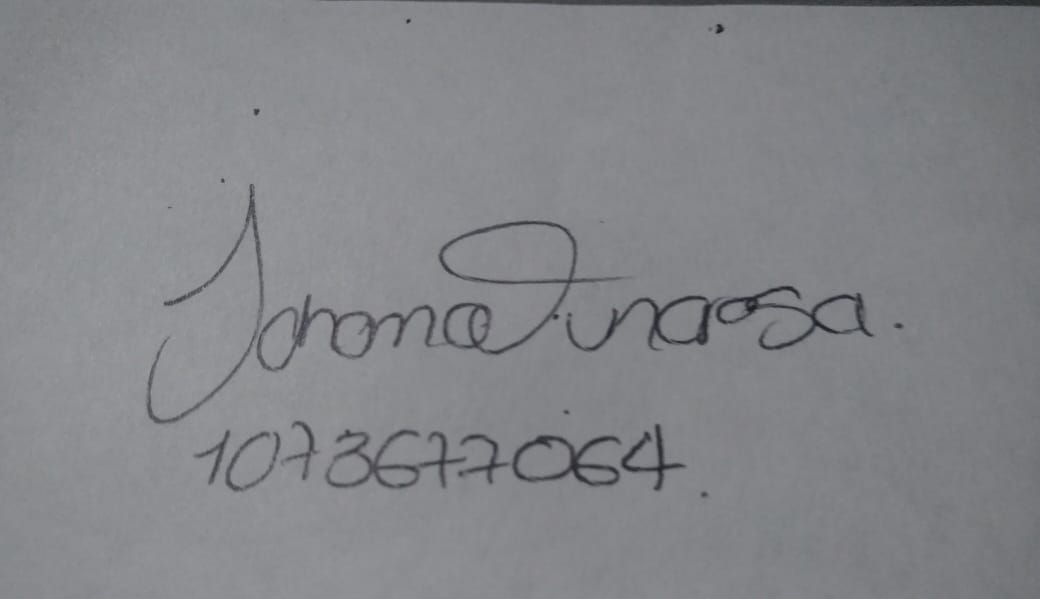 Johana Hinaosa.
1073677064.